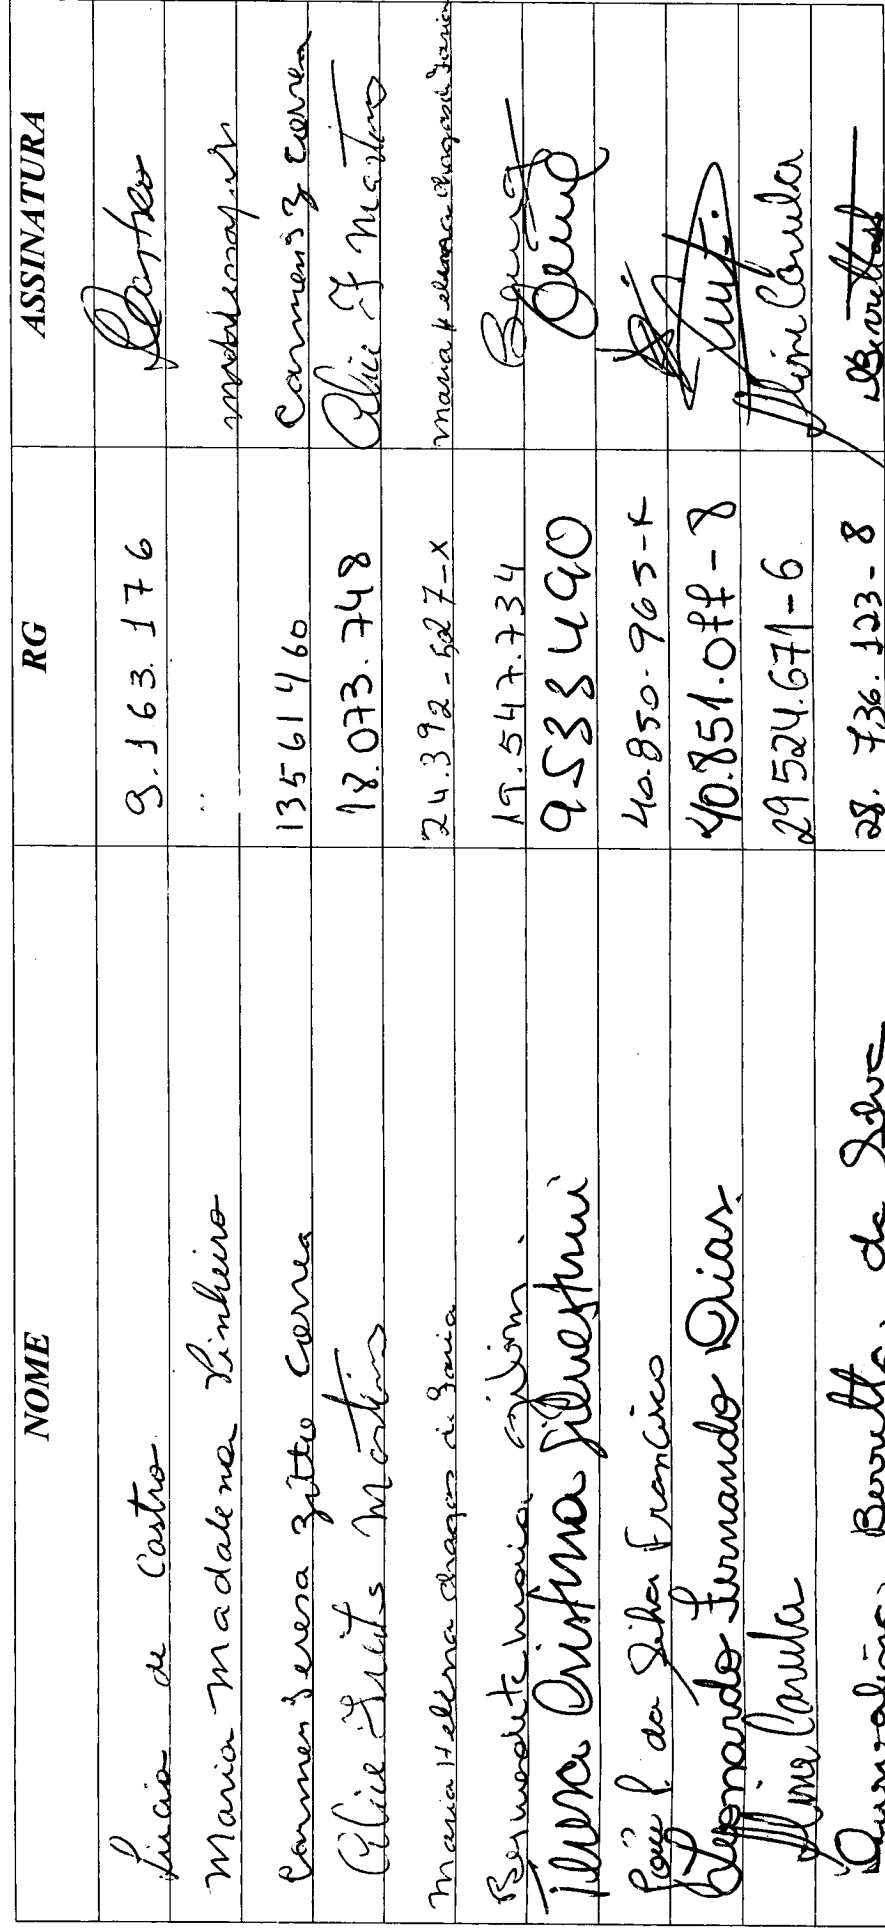 NOME RG ASSINATURA
Lucia de Castro 9.163.176 LCastro
Maria Madalena Pinheiro
Carmen Teresa Zitto Correa 13561460 Carmen T Z Correa
Alice Martins 18.073.748 Alice F Martins
Maria Helena chagas de Faria 24.392-527-X Maria Helena chagas de Faria
Bernadete maria 19.547.734
Teresa Cristina Silvestrini 9533490
José P. da Silva Francisco 40.850.965-X
Leonardo Fernando Dias 40.851.077-8
Aline Canula 29524.671-6 Aline Canula
Berretta da Silva 28.736.123-8